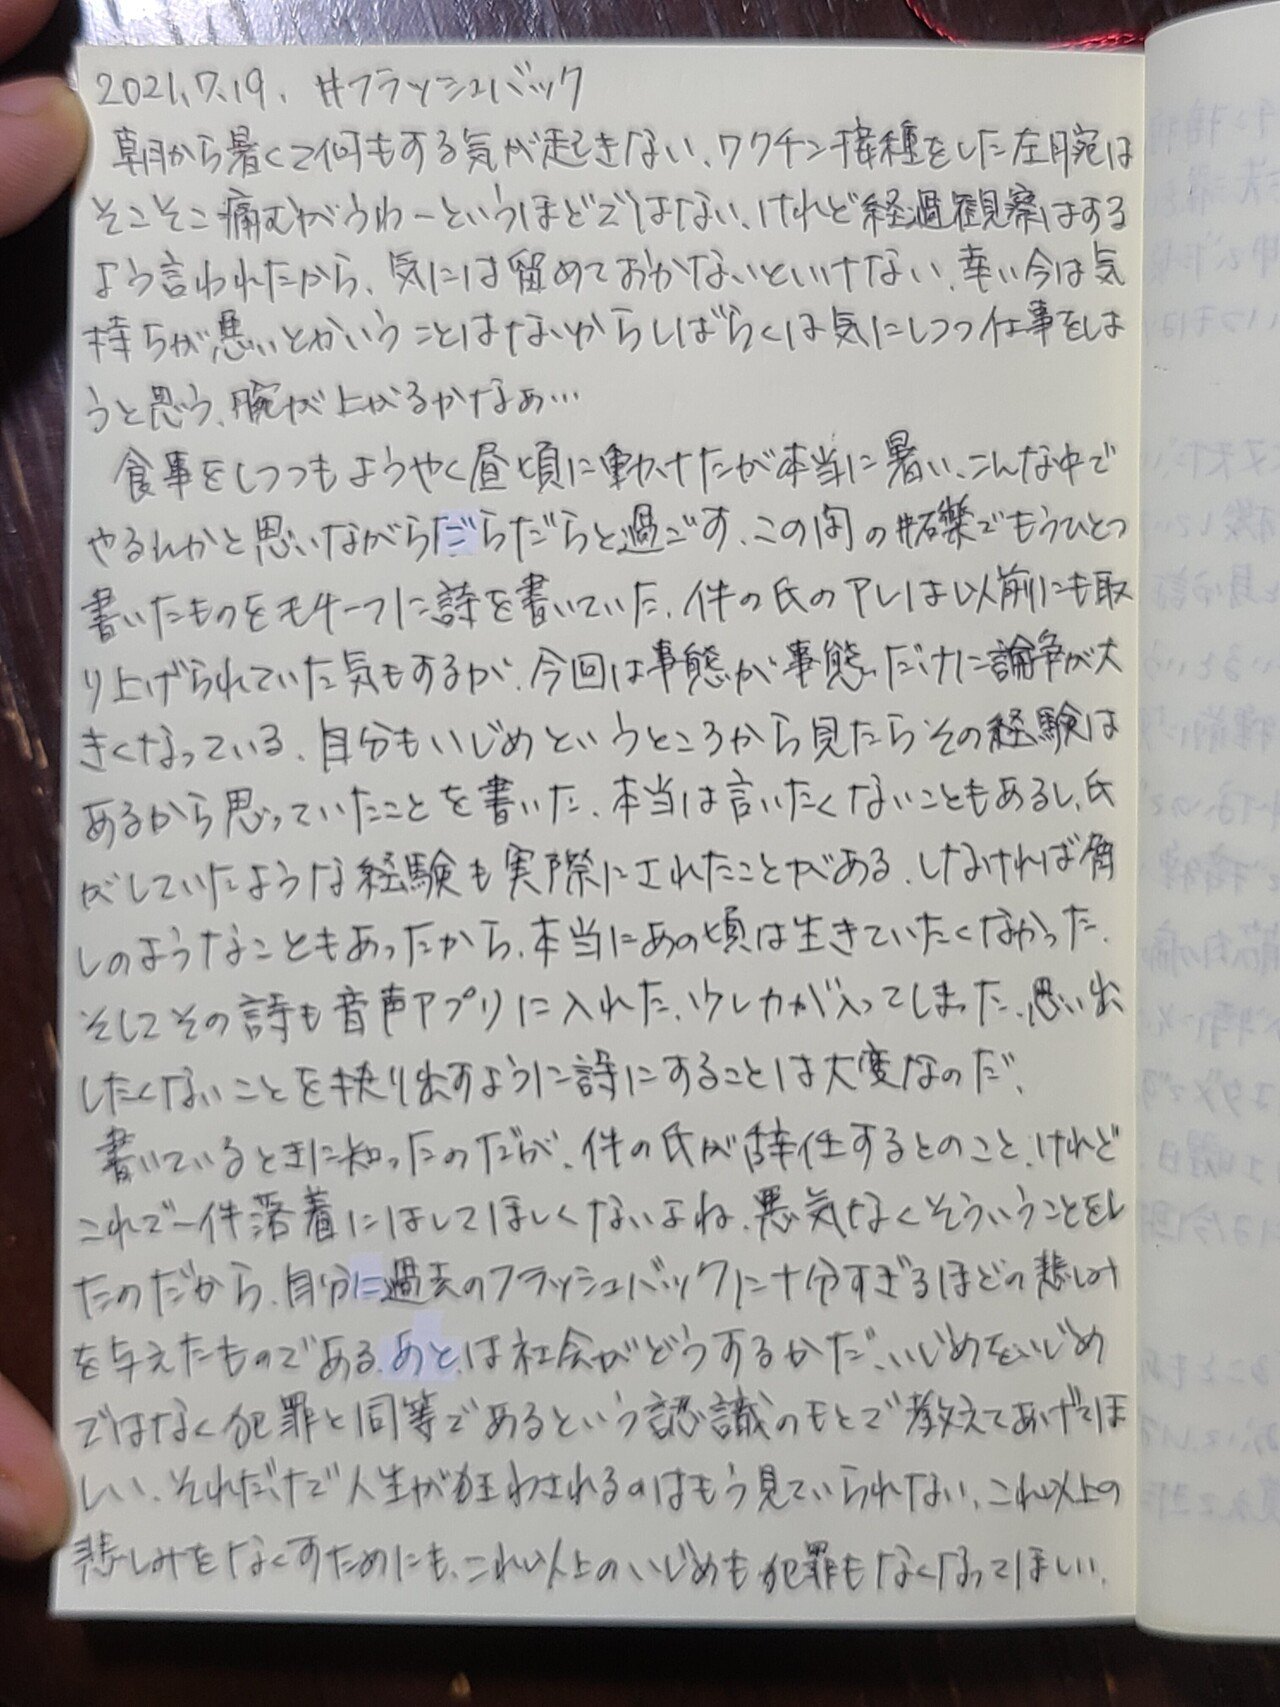 2021.7.19. #フラッシュバック
朝から暑くて何もする気が起きない、ワクチン接種をした左腕は
そこそこ痛むがうわーというほどではない、けれど経過観察はする
よう言われたから、気には留めておかないといけない、幸い今は気
持ちが悪いとかいうことはないからしばらくは気にしつつ仕事をしよ
うと思う、腕が上がるかなぁ…
食事をしつつもようやく昼頃に動けたが本当に暑い、こんな中で
やるんかと思いながらだらだらと過ごす、この間の#石礫でもうひとつ
書いたものをモチーフに詩を書いていた、件の氏のアレは以前にも取
り上げられていた気もするが、今回は事態が事態だけに論争が大
きくなっている、自分もいじめというところから見たらその経験は
あるから思っていたことを書いた、本当は言いたくないこともあるし、氏
がしていたような経験も実際にされたことがある、しなければ脅
しのようなこともあったから、本当にあの頃は生きていたくなかった、
そしてその詩も音声アプリに入れた、少し力が入ってしまった、思い出
したくないことを抉り出すように詩にすることは大変なのだ、
書いているときに知ったのだが、件の氏が辞任するとのこと、けれど
これで一件落着にはしてほしくないよね、悪気なくそういうことをし
たのだから、自分に過去のフラッシュバックに十分すぎるほどの悲しみ
を与えたものである、あとは社会がどうするかだ、いじめをいじめ
ではなく犯罪と同等であるという認識のもとで教えてあげてほ
しい、それだけで人生が狂わされるのはもう見ていられない、これ以上の
悲しみをなくすためにも、これ以上のいじめも犯罪もなくなってほしい、